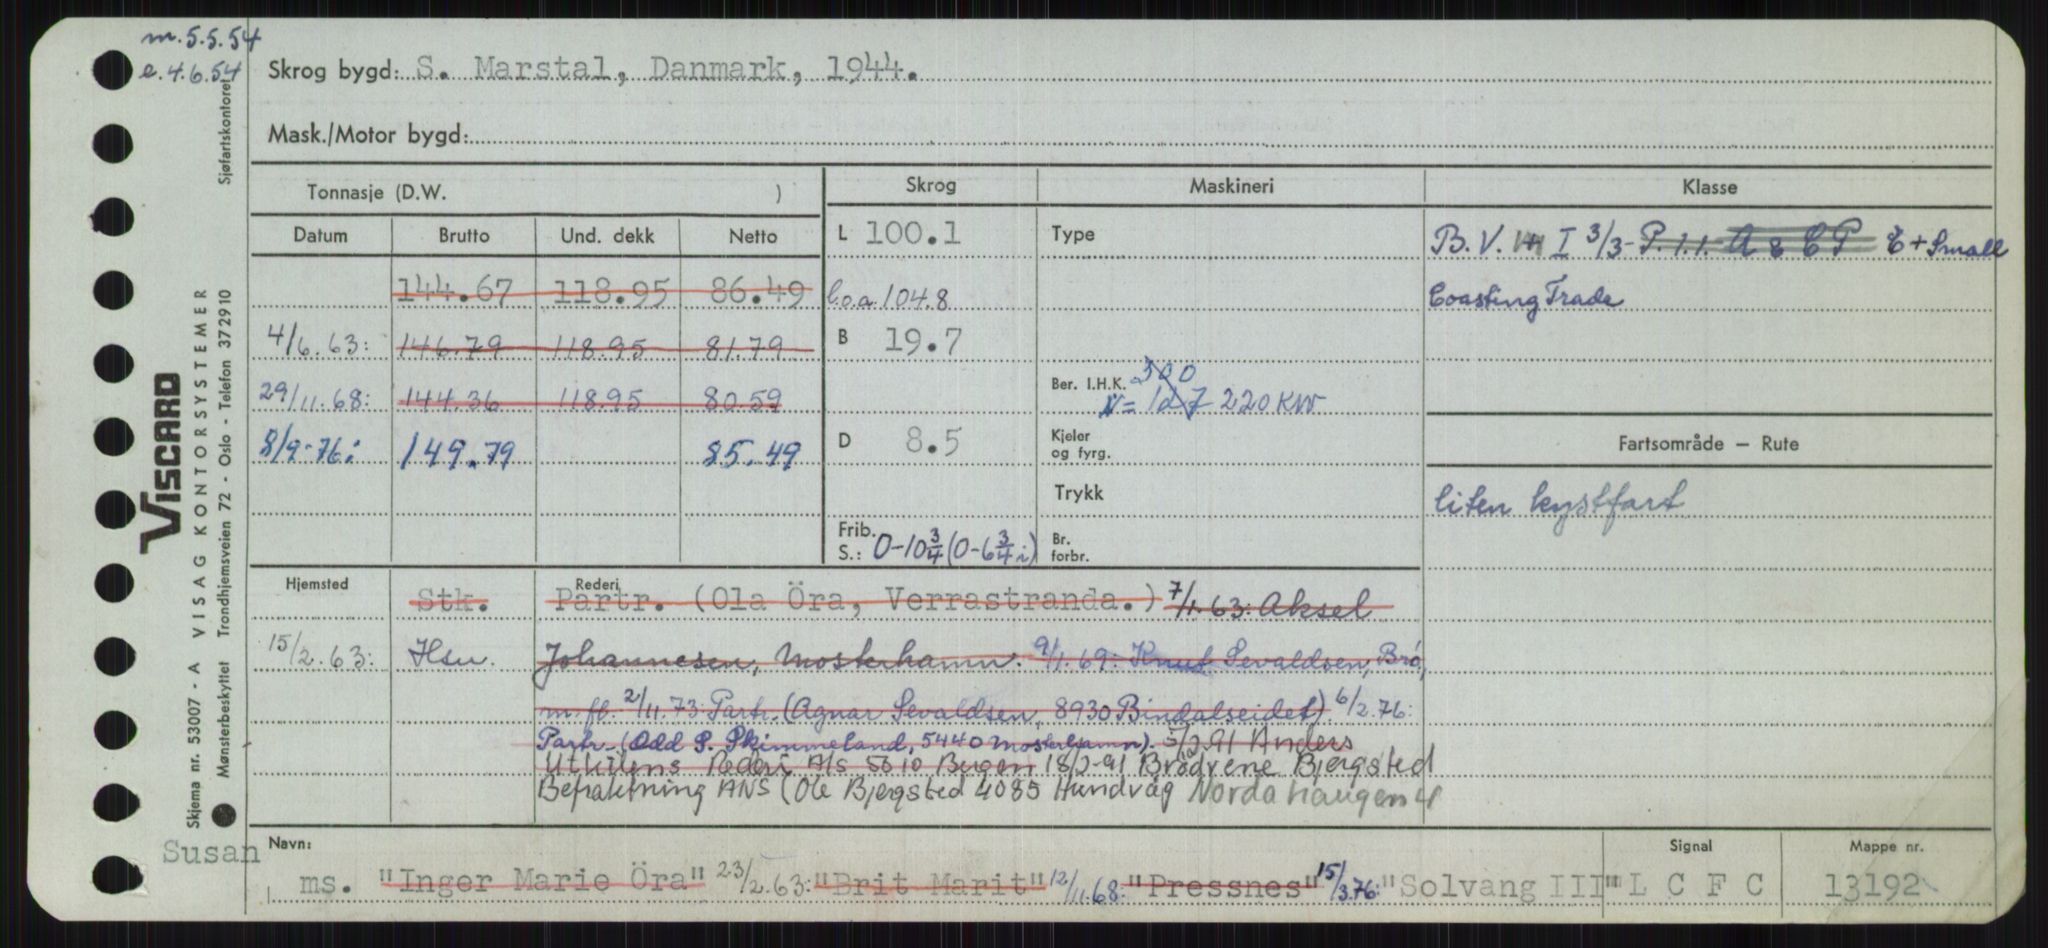 m. 5.5.54
e. 4.6.54
Skrog bygd: S. Marstal, Danmark, 1944.
Mask./Motor bygd:
Tonnasje (D.W. )
Datum Brutto Und. dekk Netto
144.67 118.95 86.49
4/6.63: 146.79 118.95 81.79
29/11.68: 144.36 118.95 80.59
8/9-76: 149.79 85.49
Skrog
L 100.1
l.o.a. 104.8
B 19.7
D 8.5
Frib.
S.: 0-10 3/4 (0-6 3/4 i)
Maskineri
Type
Ber. I.H.K. 300
N = 127 220 KW
Kjeler
og fyrg.
Trykk
Br.
forbr.
Klasse
B.V. I 3/3- P. 1.1. A & C P E + Small
Coasting Trade
Fartsområde — Rute
liten kystfart
Hjemsted Rederi
Stk. Partr. (Ola Öra, Verrastranda.) 7/1.63: Aksel
15/2.63: Hsu. Johannesen, Mosterhamn. 9/1.69: Knut Sevaldsen, Brø,
m.fl. 2/11.73: Partr. (Agnar Sevaldsen, 8930 Bindalseidet) 6/2.76:
Partr. (Odd S. Skimmeland, 5440 Mosterhamn). 5/2.91 Anders
Utkilens Rederi A/S 5610 18/2-91 Brødrene Bjergsted
Befraktning ANS (Ole Bjergsted 4085 Hundvåg Nordahaugen 4
Susan
Navn:
ms. "Inger Marie Öra" 23/2.63: "Brit Marit" 12/11.68: "Pressnes" 15/3.76: "Solvang III"
Signal
L C F C
Mappe nr.
13192
VISCARD
Skjema nr. 53007 - A VISAG KONTORSYSTEMER
Mønsterbeskyttet Trondhjemsveien 72 - Oslo - Telefon 372910
Sjøfartskontoret